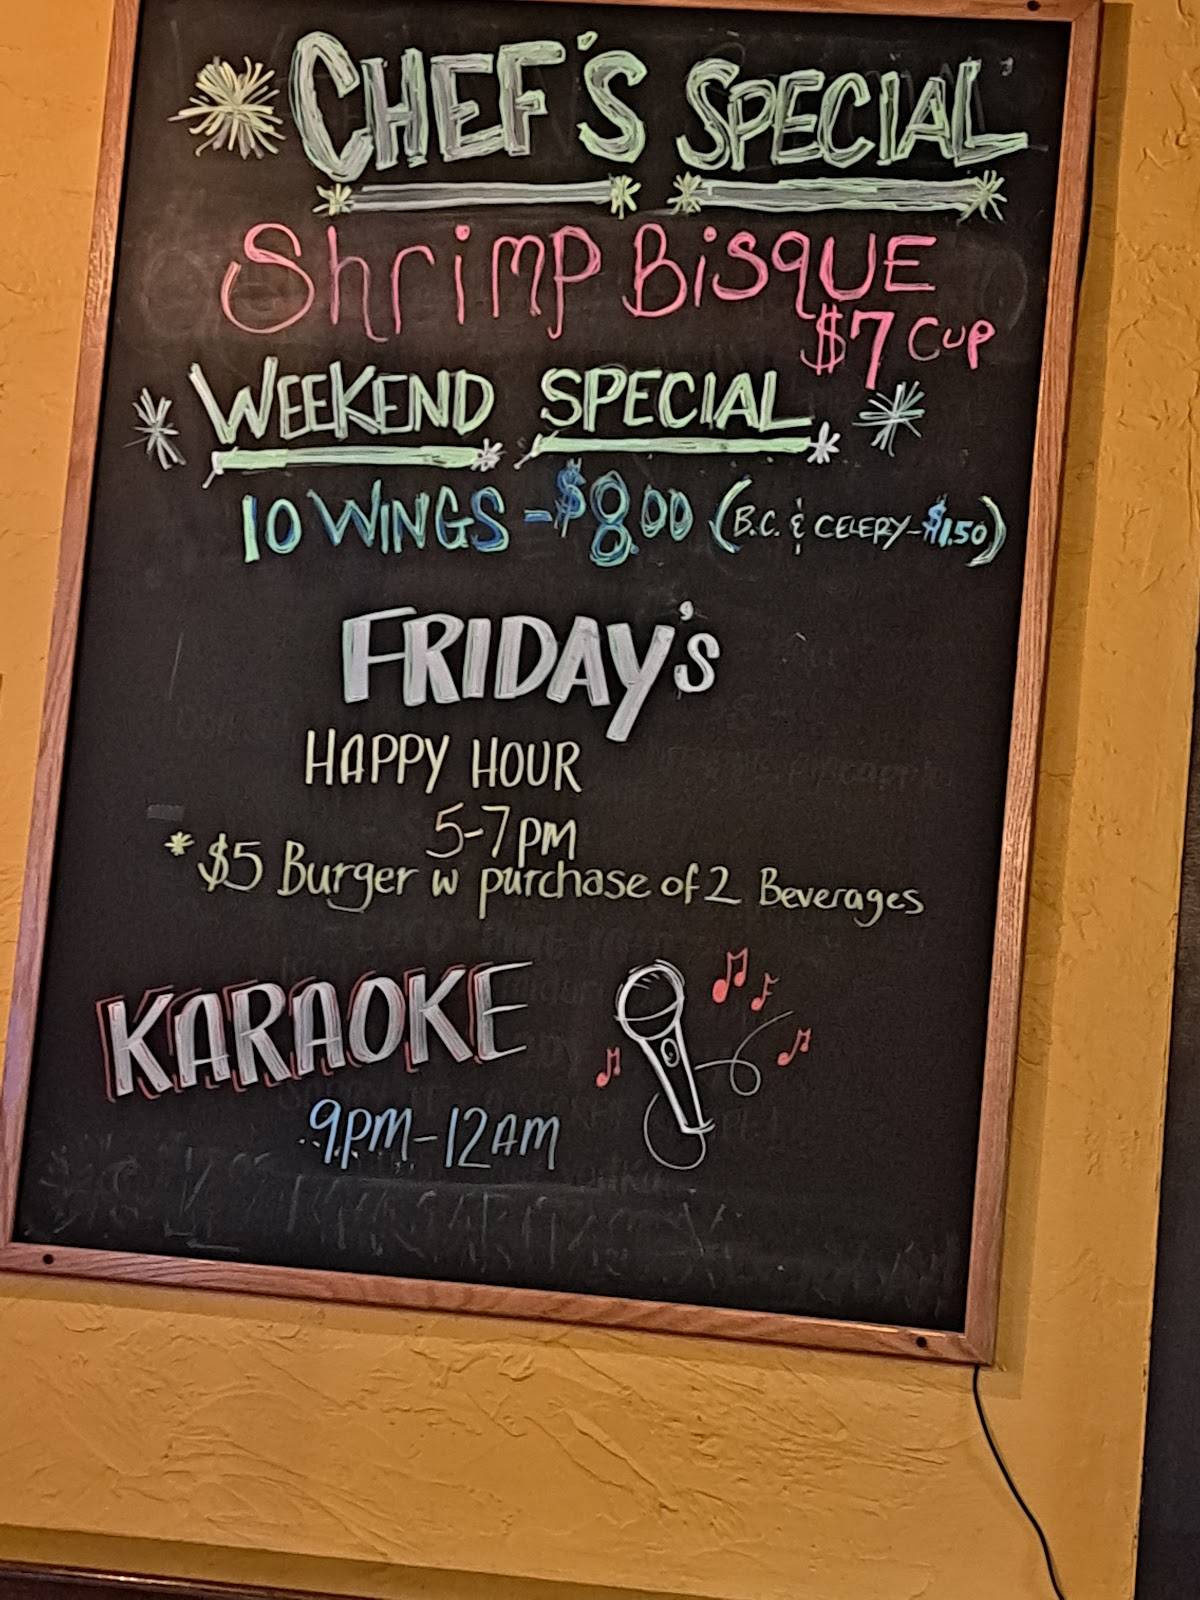 CHEF'S SPECIAL
Shrimp BisQUE
$7 Cup
WEEKEND SPECIAL
10 WINGS - $8.00 (B.C. & CELERY - $1.50)
FRIDAY'S
HAPPY HOUR
5-7PM
* $5 Burger w purchase of 2 Beverages
KARAOKE
9PM-12AM